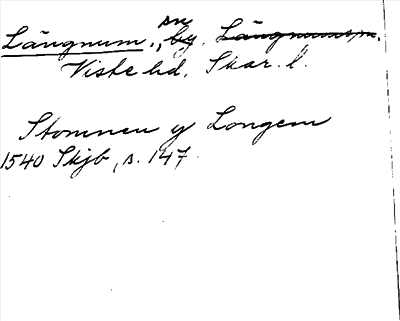 Längnum., sn by. Längnums sn.
Viste hd. Skar. l.
Stommen y Longem
1540 Skjb, s. 147.